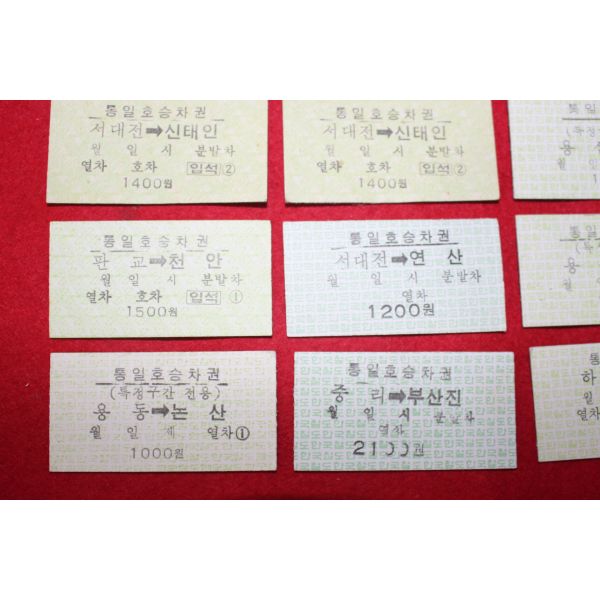 통일호승차권
서대전➡신태인
월 일 시 분발차
열차 호차 입석 ②
1400원
통일호승차권
서대전➡신태인
월 일 시 분발차
열차 호차 입석 ②
1400원
통일호승차권
판 교➡천 안
월 일 시 분발차
열차 호차 입석 ①
1500원
통일호승차권
서대전➡연 산
월 일 시 분발차
열차
1200원
통일호승차권
(특정구간 전용)
용 동➡논 산
월 일 시 열차①
1000원
통일호승차권
중 리➡부산진
월 일 시 분발차
열차
2100원